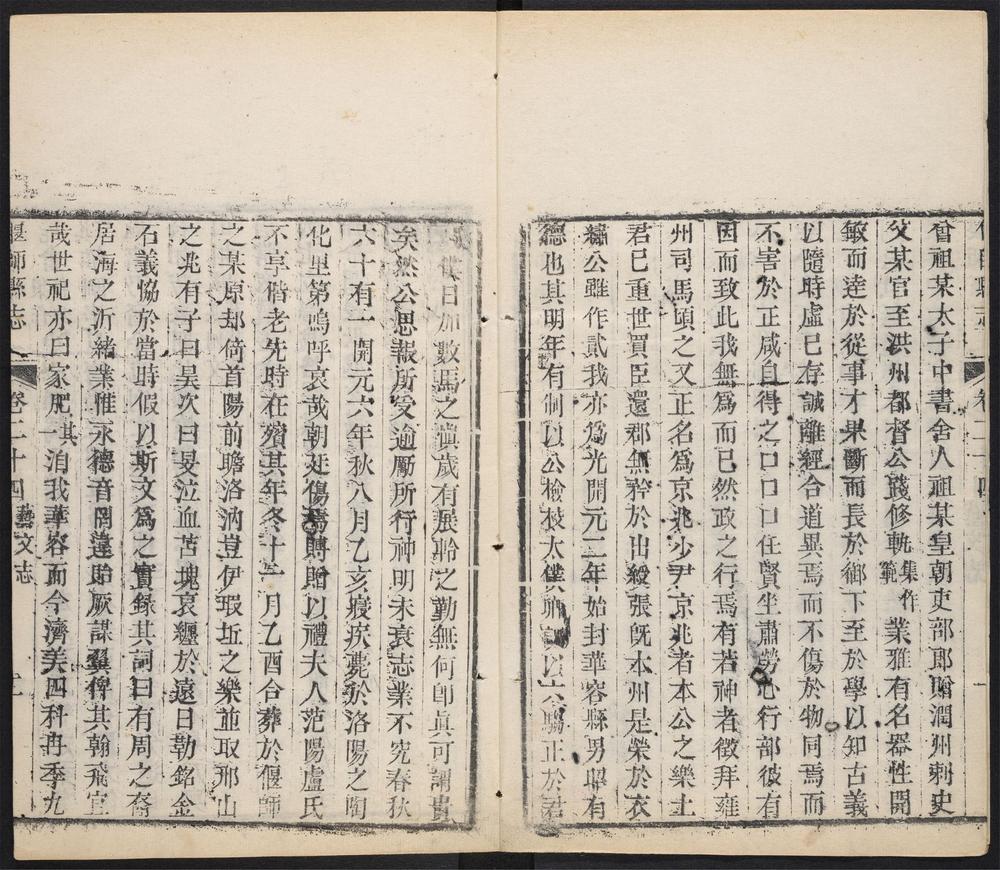 偃師縣志 卷二十四 二
曾祖某太子中書舍人祖某皇朝吏部郎贈潤州刺史
父某官至洪州都督公踐修軌集作範業雅有名器性開
敏而達於從事才果斷而長於御下至於學以知古義
以隨時虛已存誠離經合道異焉而不傷於物同焉而
不害於正咸自得之口口口任賢坐肅勞心行部彼有
因而致此我無爲而已然政之行焉有若神者徵拜雍
州司馬頃之又正名爲京兆少尹京兆者本公之樂土
君已重世買臣還郡無矜於出綬張旣本州是榮於衣
繡公雖作貳我亦爲光開元二年始封華容縣男田有
德也其明年有制以公檢校太僕以六騶正於君
僕日加數馬之愼歲有展軨之勤無何卽眞可謂貴
矣然公思報所受逾厲所行神明未衰志業不究春秋
六十有一開元六年秋八月乙亥寢疾薨於洛陽之陶
化里第嗚呼哀哉朝廷傷焉賵贈以禮夫人范陽盧氏
不享偕老先時在殯其年冬十一月乙酉合葬於偃師
之某原却倚首陽前瞻洛汭豈伊瑕丘之樂並取邢山
之兆有子曰昊次曰旻泣血苫塊哀纏於遠日勒銘金
石義恊於當時假以斯文爲之實録其詞曰有周之裔
居海之沂緒業惟永德音罔違貽厥謀翼俾其翰飛宜
哉世祀亦曰家肥一其洎我華容而今濟美四科冉季九
偃師縣志 卷二十四藝文志 二